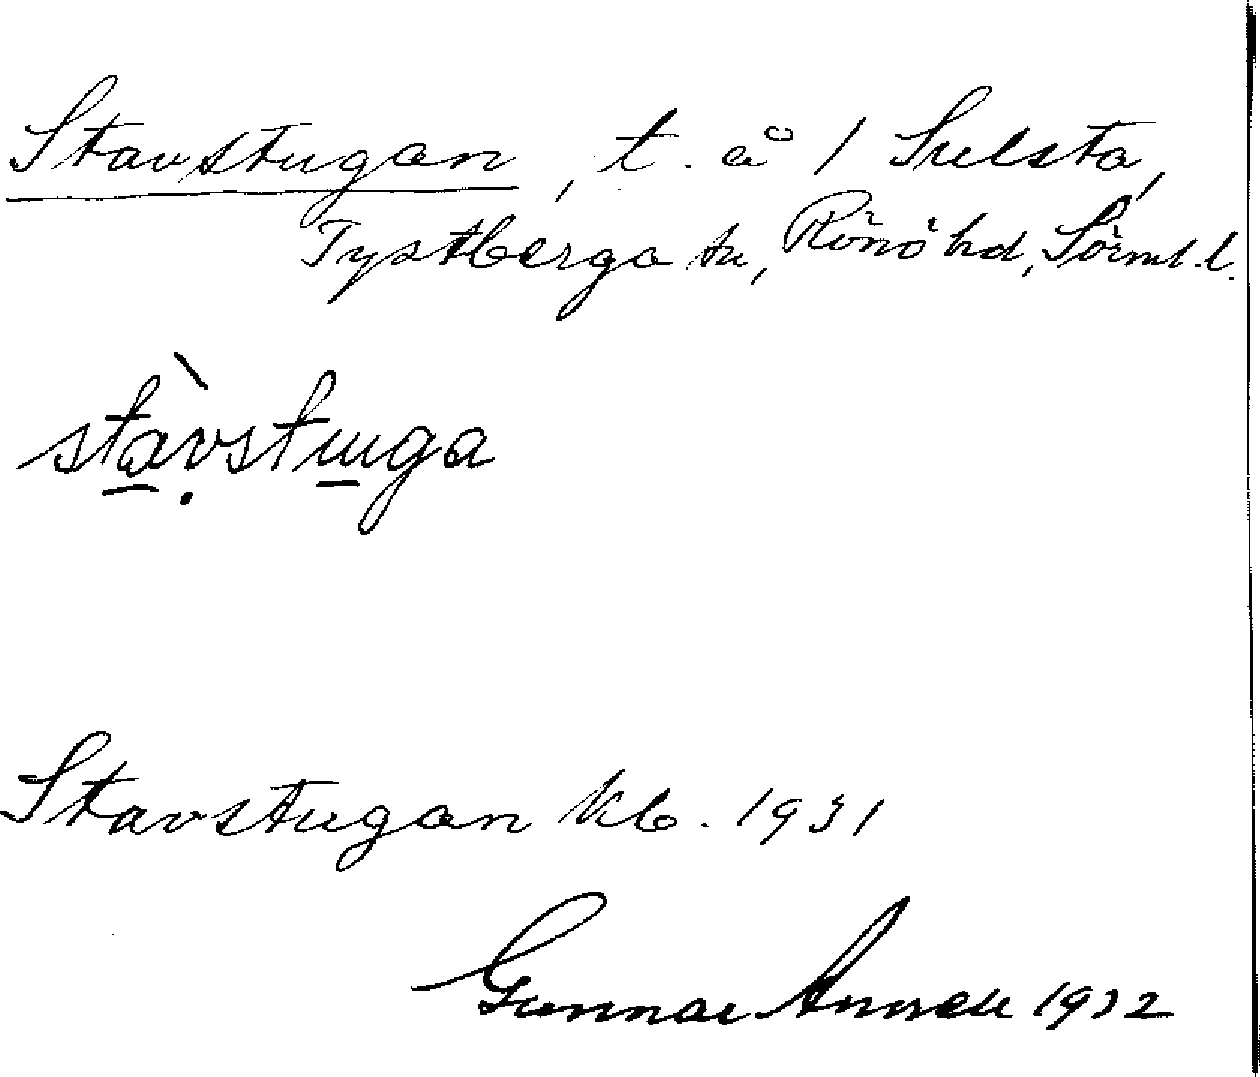 Stavstugan, t. å 1 Sulsta,
Tystberga sn, Rönö hd, Sörml. l.
stàvstuga
Stavstugan kb. 1931
Gunnar 1932